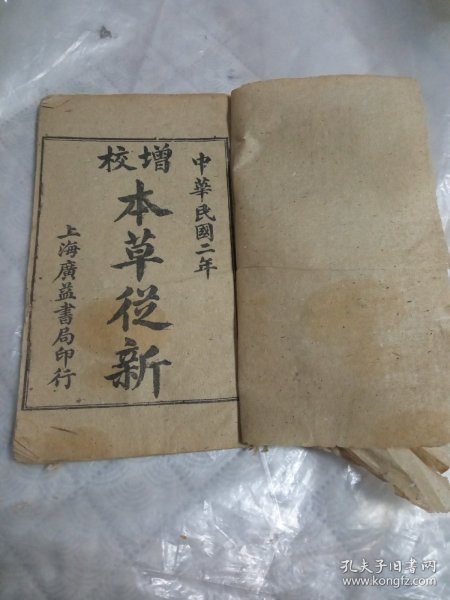 中華民國二年
增校
本草從新
上海廣益書局印行
孔夫子旧书网
www.kongfz.com